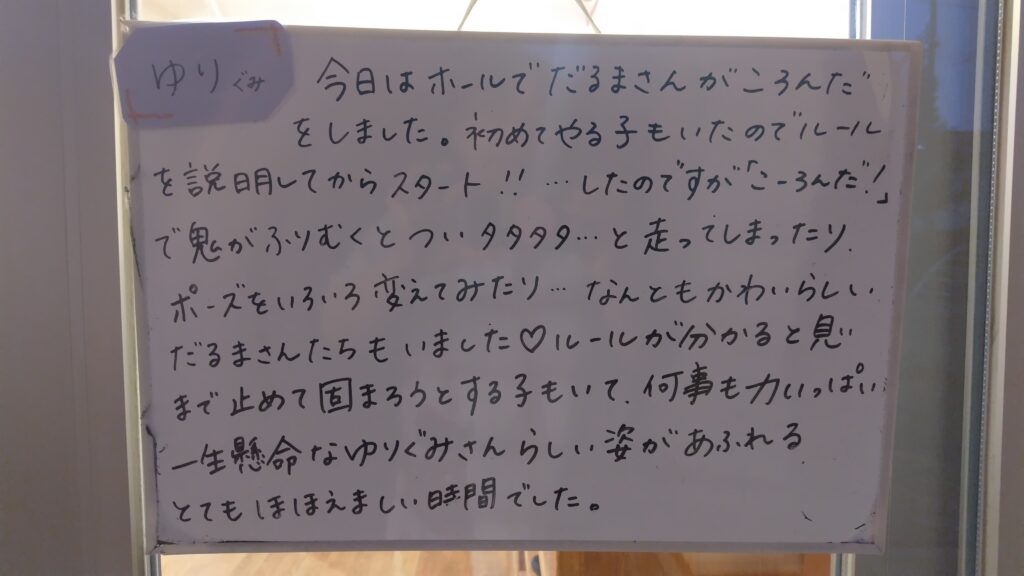 ゆりぐみ
今日はホールでだるまさんがころんだ
をしました。初めてやる子もいたのでルール
を説明してからスタート!! …したのですが「こーろんだ!」
で鬼がふりむくとついタタタタ…と走ってしまったり、
ポーズをいろいろ変えてみたり…なんともかわいらしい
だるまさんたちもいました♡ルールが分かると息
まで止めて固まろうとする子もいて、何事も力いっぱい
一生懸命なゆりぐみさんらしい姿があふれる
とてもほほえましい時間でした。